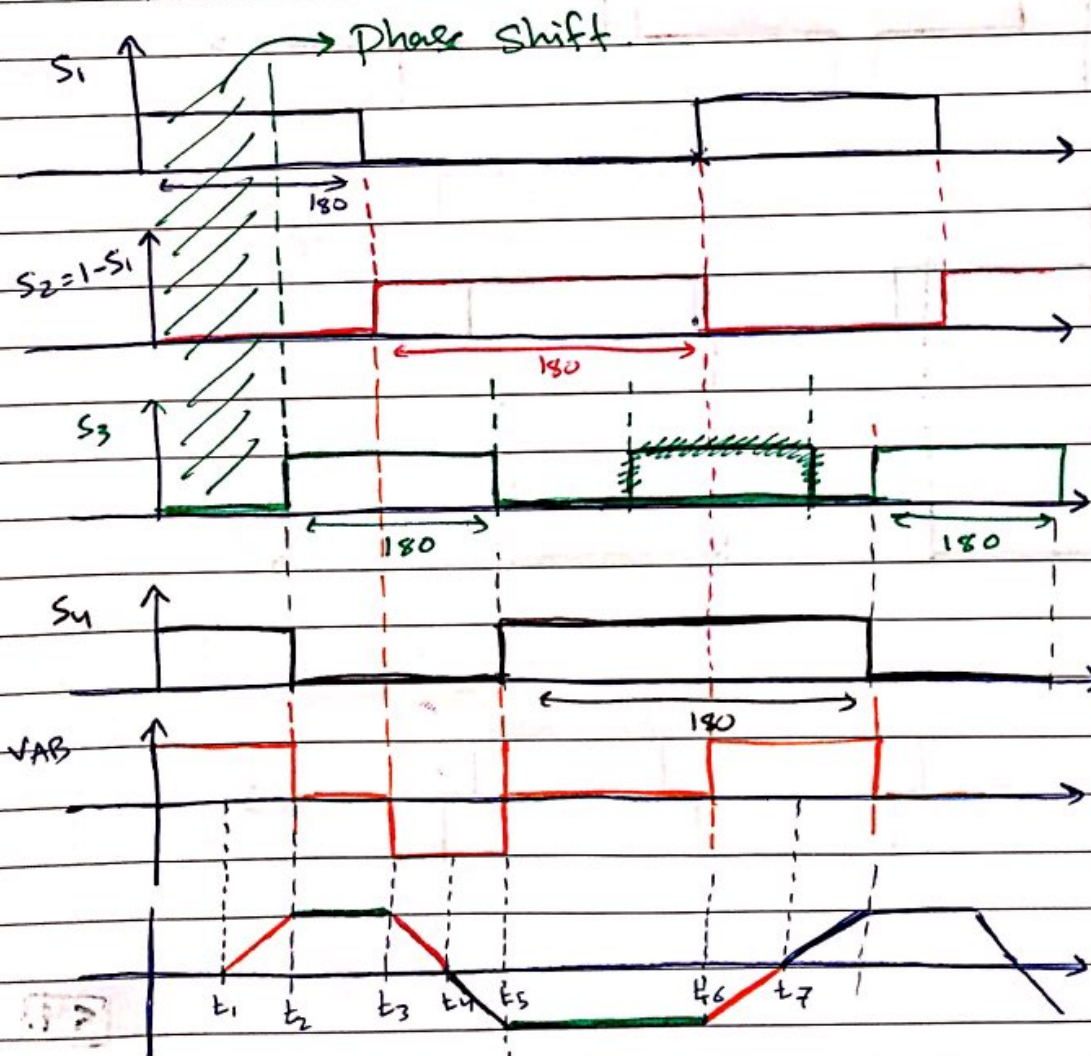 Phase Shift.
S1
180
S2=1-S1
180
S3
180
180
S4
180
VAB
t1 t2 t3 t4 t5 t6 t7